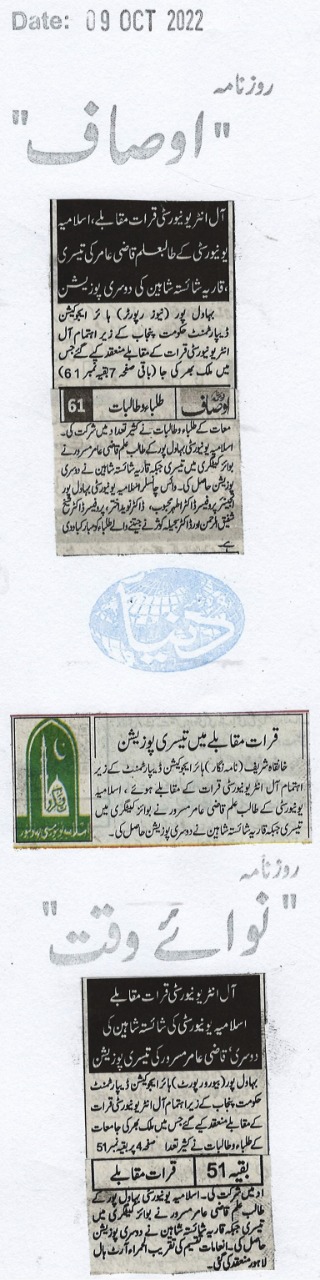 Date: 09 OCT 2022
روزنامہ
"اوصاف"
آل انٹر یونیورسٹی قرات مقابلے، اسلامیہ
یونیورسٹی کے طالبعلم قاضی عامر کی تیسری
،قاریہ شائستہ شاہین کی دوسری پوزیشن
بہاول پور (نیوز رپورٹر) ہائر ایجوکیشن
ڈیپارٹمنٹ حکومت پنجاب کے زیر اہتمام آل
انٹر یونیورسٹی قرات کے مقابلے منعقد کیے گئے جس
میں ملک بھر کی جا (باقی صفحہ 7 بقیہ نمبر 61)
اوصاف طلباء و طالبات 61
معات کے طلباء و طالبات نے کثیر تعداد میں شرکت کی۔
اسلامیہ یونیورسٹی بہاول پور کے طالب علم قاضی عامر مسرور نے
بوائز کیٹگری میں تیسری جبکہ قاریہ شائستہ شاہین نے دوسری
پوزیشن حاصل کی۔ وائس چانسلر اسلامیہ یونیورسٹی بہاول پور
انجینئر پروفیسر ڈاکٹر اطہر محبوب، ڈاکٹر نوید اختر، پروفیسر ڈاکٹر شیخ
شفیق الرحمن اور ڈاکٹر سجیلہ کوثر نے جیتنے والے طلباء کو مبارکباد دی
ہے
دنیا
قرات مقابلے میں تیسری پوزیشن
خانقاہ شریف (نامہ نگار) ہائر ایجوکیشن ڈیپارٹمنٹ کے زیر
اہتمام آل انٹر یونیورسٹی قرات کے مقابلے ہوئے ، اسلامیہ
یونیورسٹی کے طالب علم قاضی عامر مسرور نے بوائز کیٹگری میں
تیسری جبکہ قاریہ شائستہ شاہین نے دوسری پوزیشن حاصل کی۔
روزنامہ
"نوائے وقت"
آل انٹر یونیورسٹی قرات مقابلے
اسلامیہ یونیورسٹی کی شائستہ شاہین کی
دوسری، قاضی عامر مسرور کی تیسری پوزیشن
بہاول پور (بیورو رپورٹ) ہائر ایجوکیشن ڈیپارٹمنٹ
حکومت پنجاب کے زیر اہتمام آل انٹر یونیورسٹی قرات
کے مقابلے منعقد کیے گئے جس میں ملک بھر کی جامعات
کے طلباء و طالبات نے کثیر تعدا صفحہ 4 پر بقیہ نمبر 51
بقیہ 51 قرات مقابلے
اد میں شرکت کی۔ اسلامیہ یونیورسٹی بہاول پور کے
طالب علم قاضی عامر مسرور نے بوائز کیٹگری میں
تیسری جبکہ قاریہ شائستہ شاہین نے دوسری پوزیشن
حاصل کی۔ انعامات تقسیم کی تقریب الحمراء آرٹ ہال
لاہور منعقد کی گئی۔